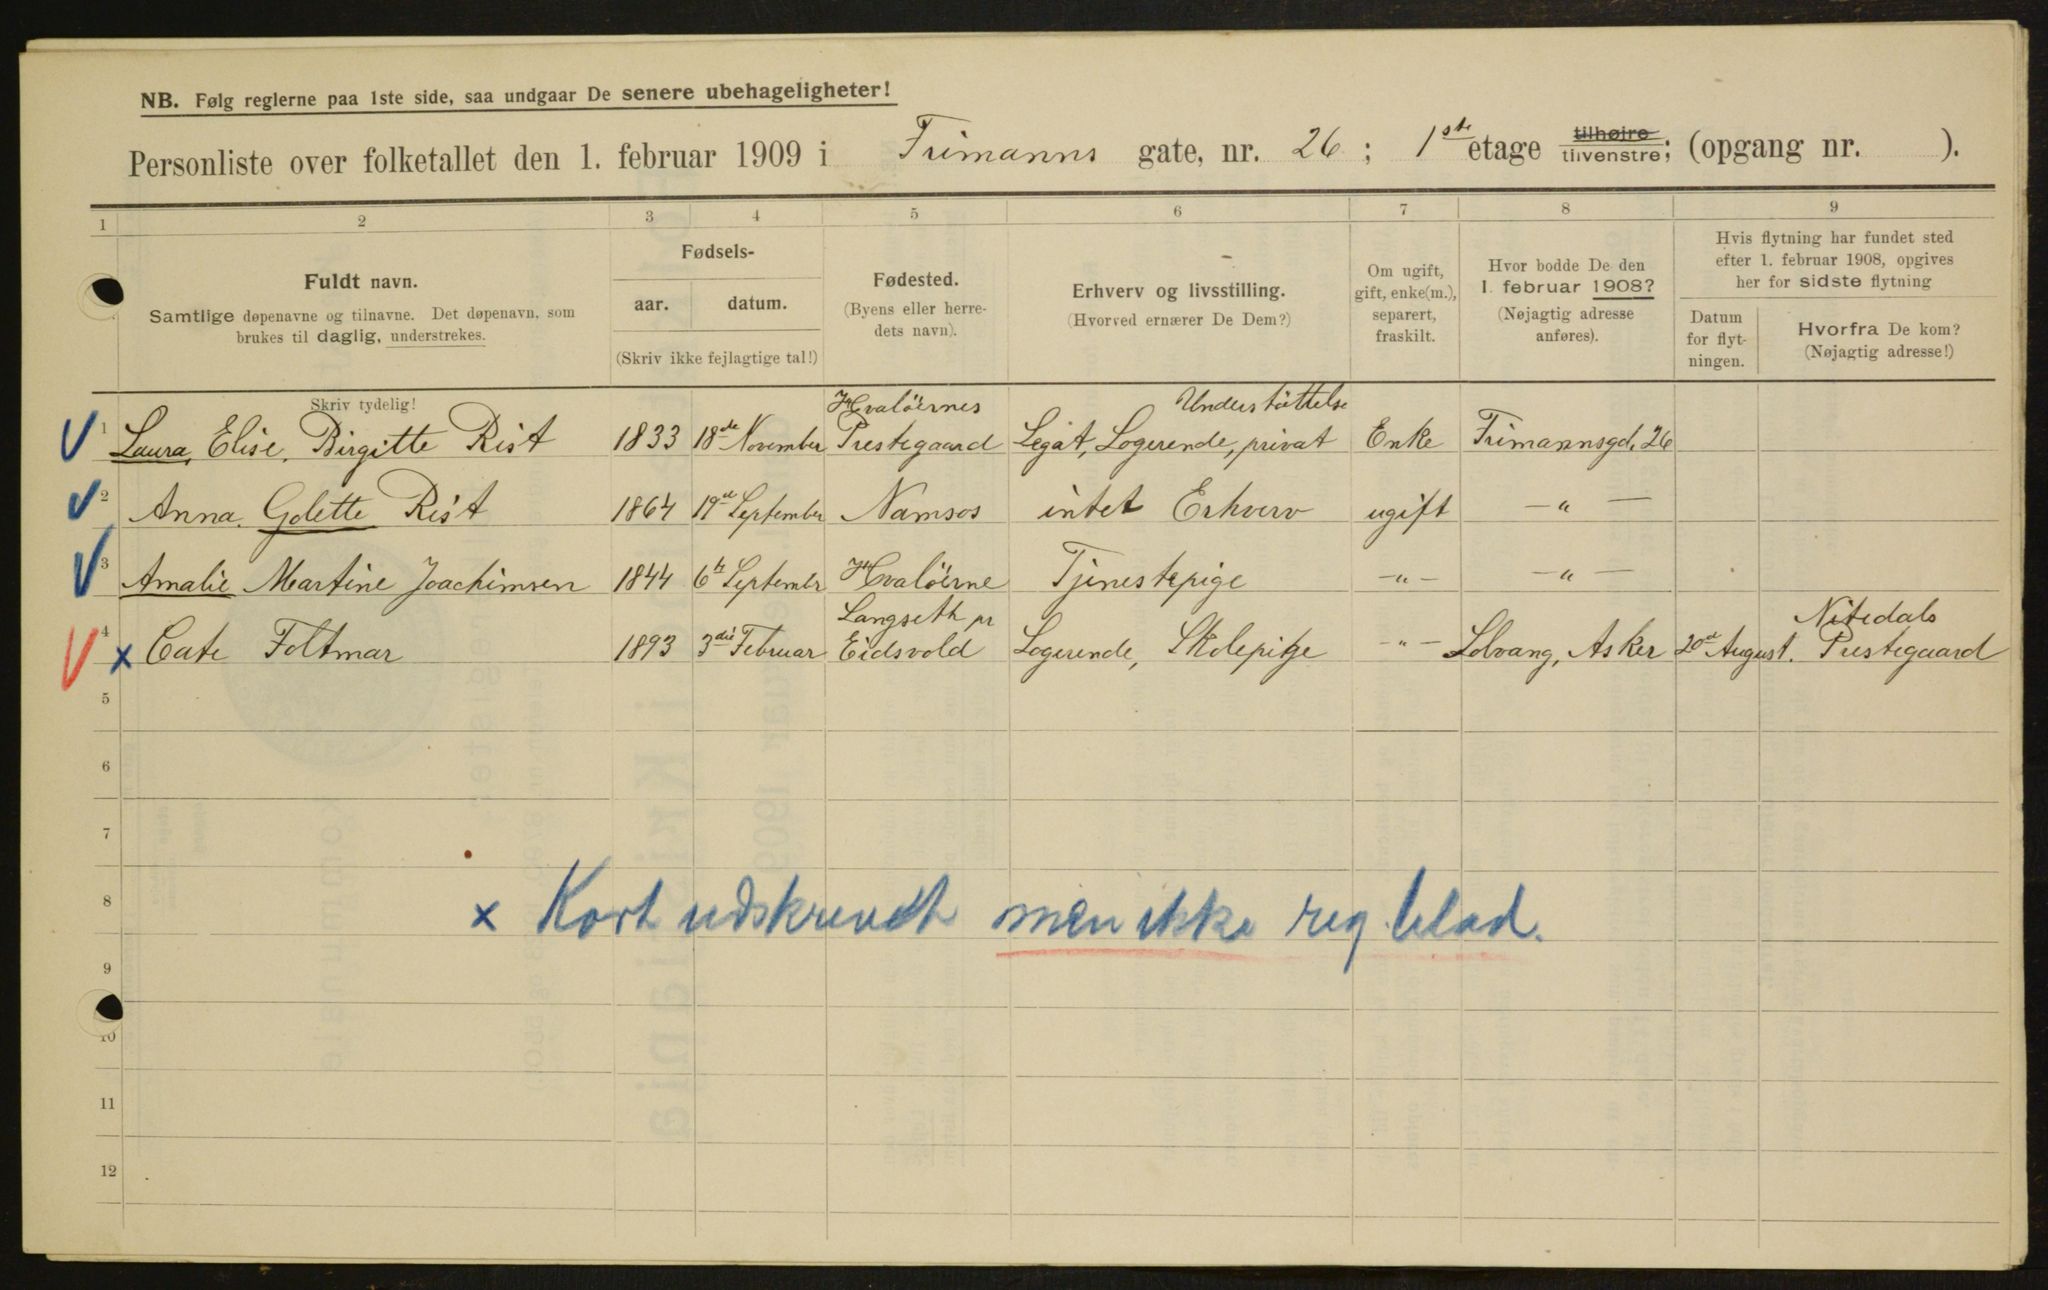 NB. Følg reglerne paa 1ste side, saa undgaar De senere ubehageligheter!
Personliste over folketallet den 1. februar 1909 i Frimanns gate, nr. 26; 1ste etage tilhøire tilvenstre; (opgang nr. ).
1 2 3 4 5 6 7 8 9
Fuldt navn.
Samtlige døpenavne og tilnavne. Det døpenavn, som
brukes til daglig, understrekes.
Fødsels-
aar. datum.
(Skriv ikke fejlagtige tal!)
Fødested.
(Byens eller herre-
dets navn).
Erhverv og livsstilling.
(Hvorved ernærer De Dem?)
Om ugift,
gift, enke(m.),
separert,
fraskilt.
Hvor bodde De den
1. februar 1908?
(Nøjagtig adresse
anføres).
Hvis flytning har fundet sted
efter 1. februar 1908, opgives
her for sidste flytning
Datum
for flyt-
ningen.
Hvorfra De kom?
(Nøjagtig adresse!)
Skriv tydelig!
Hvaløernes Understøttelse
1 Laura, Elise, Birgitte Rist 1833 18de November Prestegaard Legat, Logerende, privat Enke Frimannsgd. 26
2 Anna Golette Rist 1864 19de September Namsos intet Erhverv ugift — " —
3 Amalie Martine Joachimsen 1844 6te September Hvaløerne Tjenestepige — " — — " —
Langseth pr Nitedals
4 x Cate Foltmar 1893 3die Februar Eidsvold Logerende, Skolepige — " — Solvang, Asker 20de August. Prestegaard
5
6
7
8
x Kort udskrevet men ikke reg. blad.
9
10
11
12